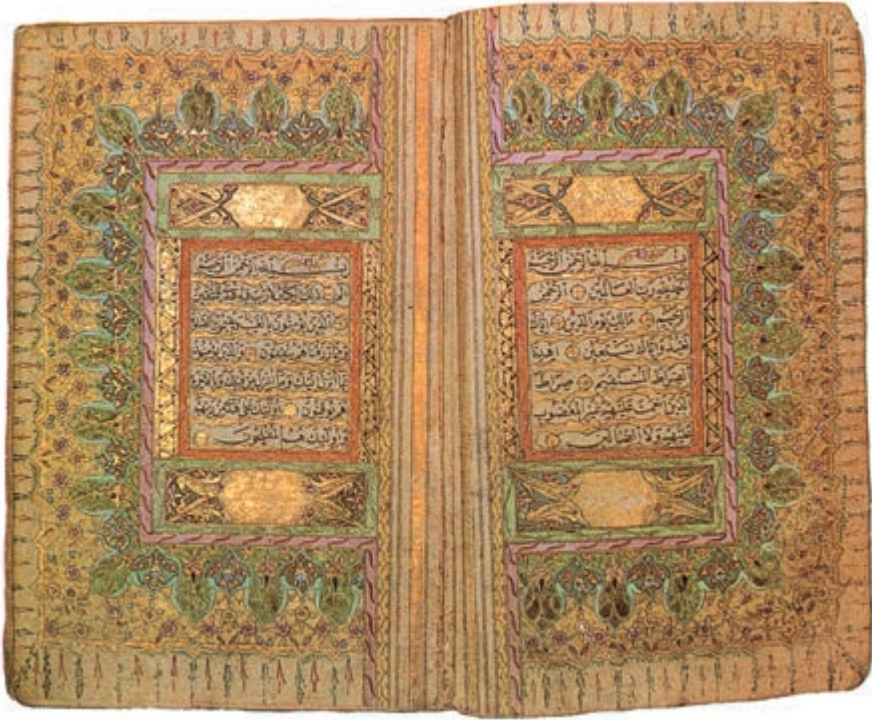 بسم الله الرحمن الرحيم
الحمد لله رب العالمين الرحمن
الرحيم مالك يوم الدين اياك
نعبد واياك نستعين اهدنا
الصراط المستقيم صراط
الذين انعمت عليهم غير المغضوب
عليهم ولا الضالين
بسم الله الرحمن الرحيم
الم ذلك الكتاب لا ريب فيه هدى للمتقين
الذين يؤمنون بالغيب ويقيمون الصلوة
ومما رزقناهم ينفقون والذين يؤمنون
بما انزل اليك وما انزل من قبلك وبالاخرة
هم يوقنون اولئك على هدى من ربهم
واولئك هم المفلحون